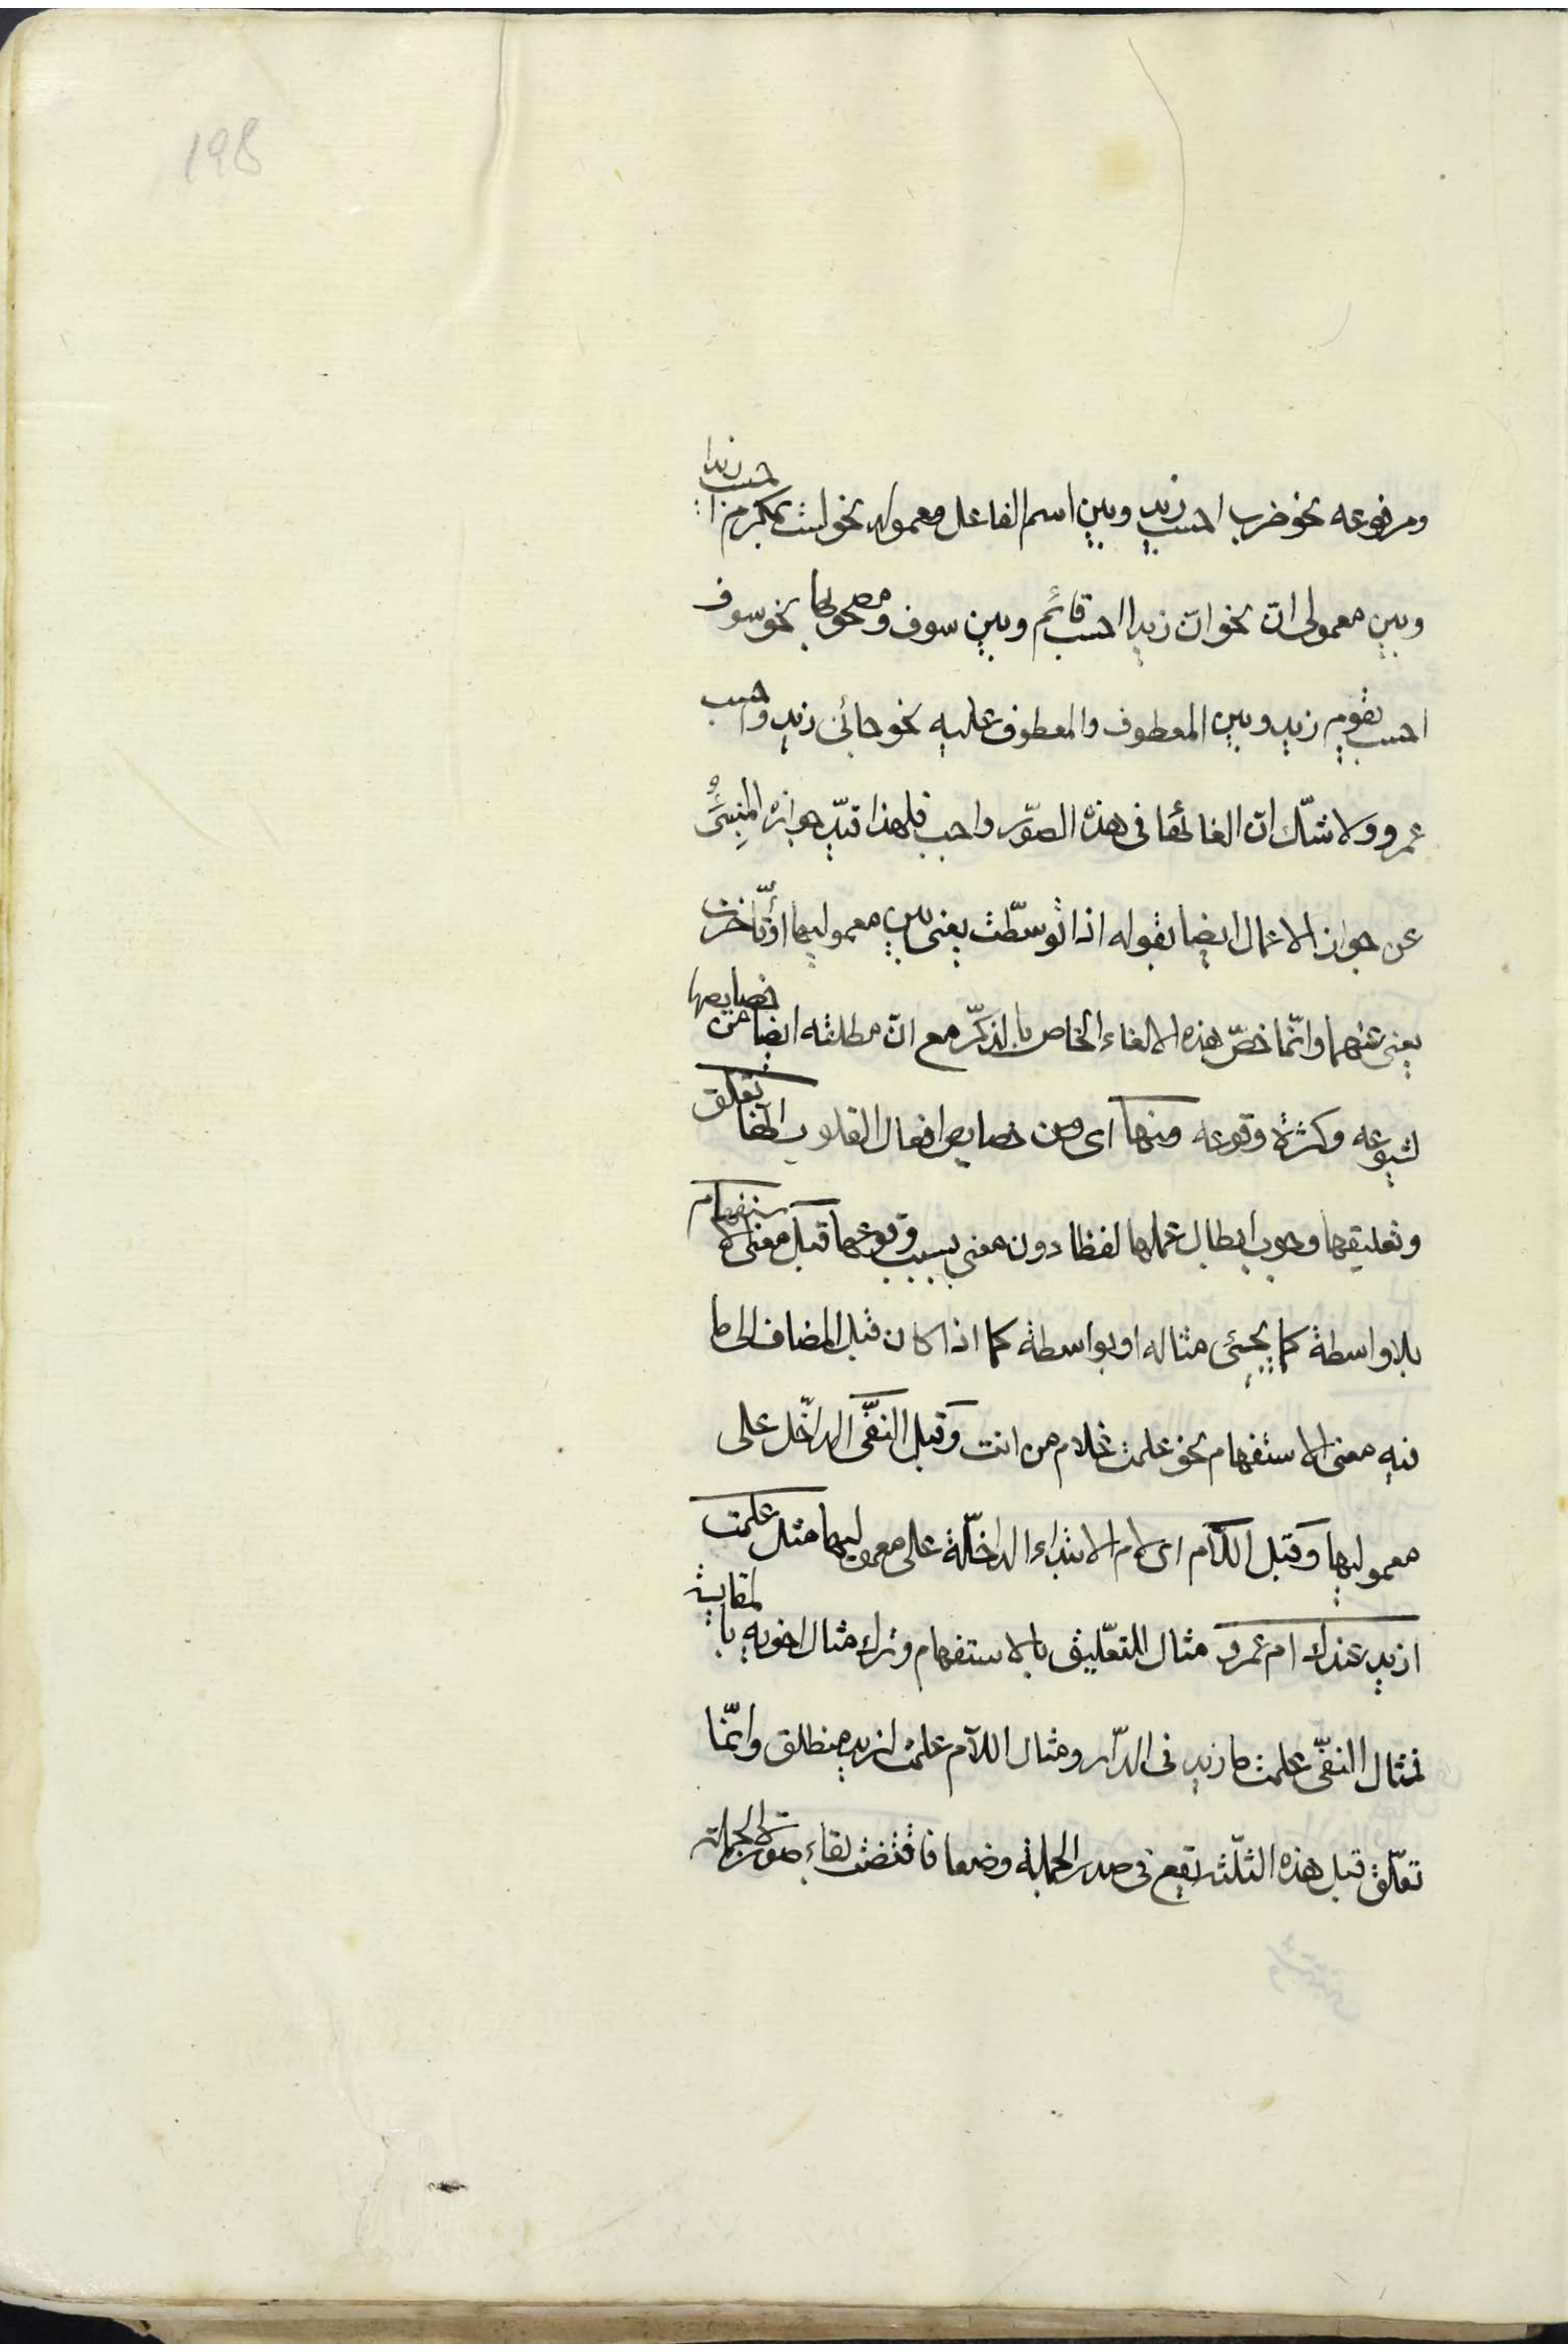 198
ومرفوعه نحو ضرب احسب زيد وبين اسم الفاعل ومعموله نحو لست بمكرم احسب زيدا
وبين معمولى ان نحو ان زيدا احسب قائم وبين سوف ومصحوبها نحو سوف
احسب يقوم زيد وبين المعطوف والمعطوف عليه نحو جائنى زيد واحسب
عمرو ولا شك ان الغائها فى هذه الصور واجب فلهذا قيد جوازه المنبئ
عن جواز الاعمال ايضا بقوله اذا توسّطت يعنى بين معموليها او تأخّرت
يعنى عنهما وانّما خصّ هذه الالغاء الخاص بالذكر مع ان مطلقه ايضا من خصايصها
لشيوعه وكثرة وقوعه ومنها اى ومن خصايص افعال القلوب انها تعلق
وتعليقها وجوب ابطال عملها لفظا دون معنى بسبب وقوعها قبل معنى الاستفهام
بلا واسطة كما يجيئ مثاله او بواسطة كما اذا كان قبل المضاف الى ما
فيه معنى الاستفهام نحو علمت غلام من انت وقبل النفى الداخل على
معموليها وقبل اللام اى لام الابتداء الداخلة على معموليها مثل علمت
ازيد عندك ام عمرو مثال للتعليق بالاستفهام وترك مثال اخويه بالمقايسة
فمثال النفى علمت ما زيد فى الدّار ومثال اللآم علمت لزيد منطلق وانّما
تعلّق قبل هذه الثلثة تقع فى صدر الجملة وضعا فاقتضت بقاء صورة الجملة